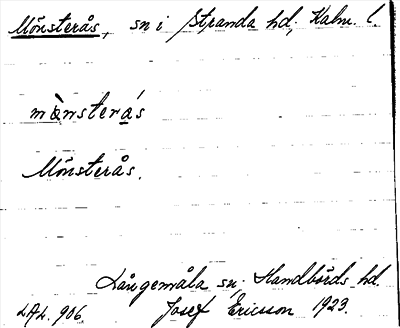 Mönsterås, sn i Stranda hd, Kalm. l.
mònsterás
Mönsterås.
Långemåla sn. Handbörds hd.
LAL. 906. Josef Ericsson 1923.